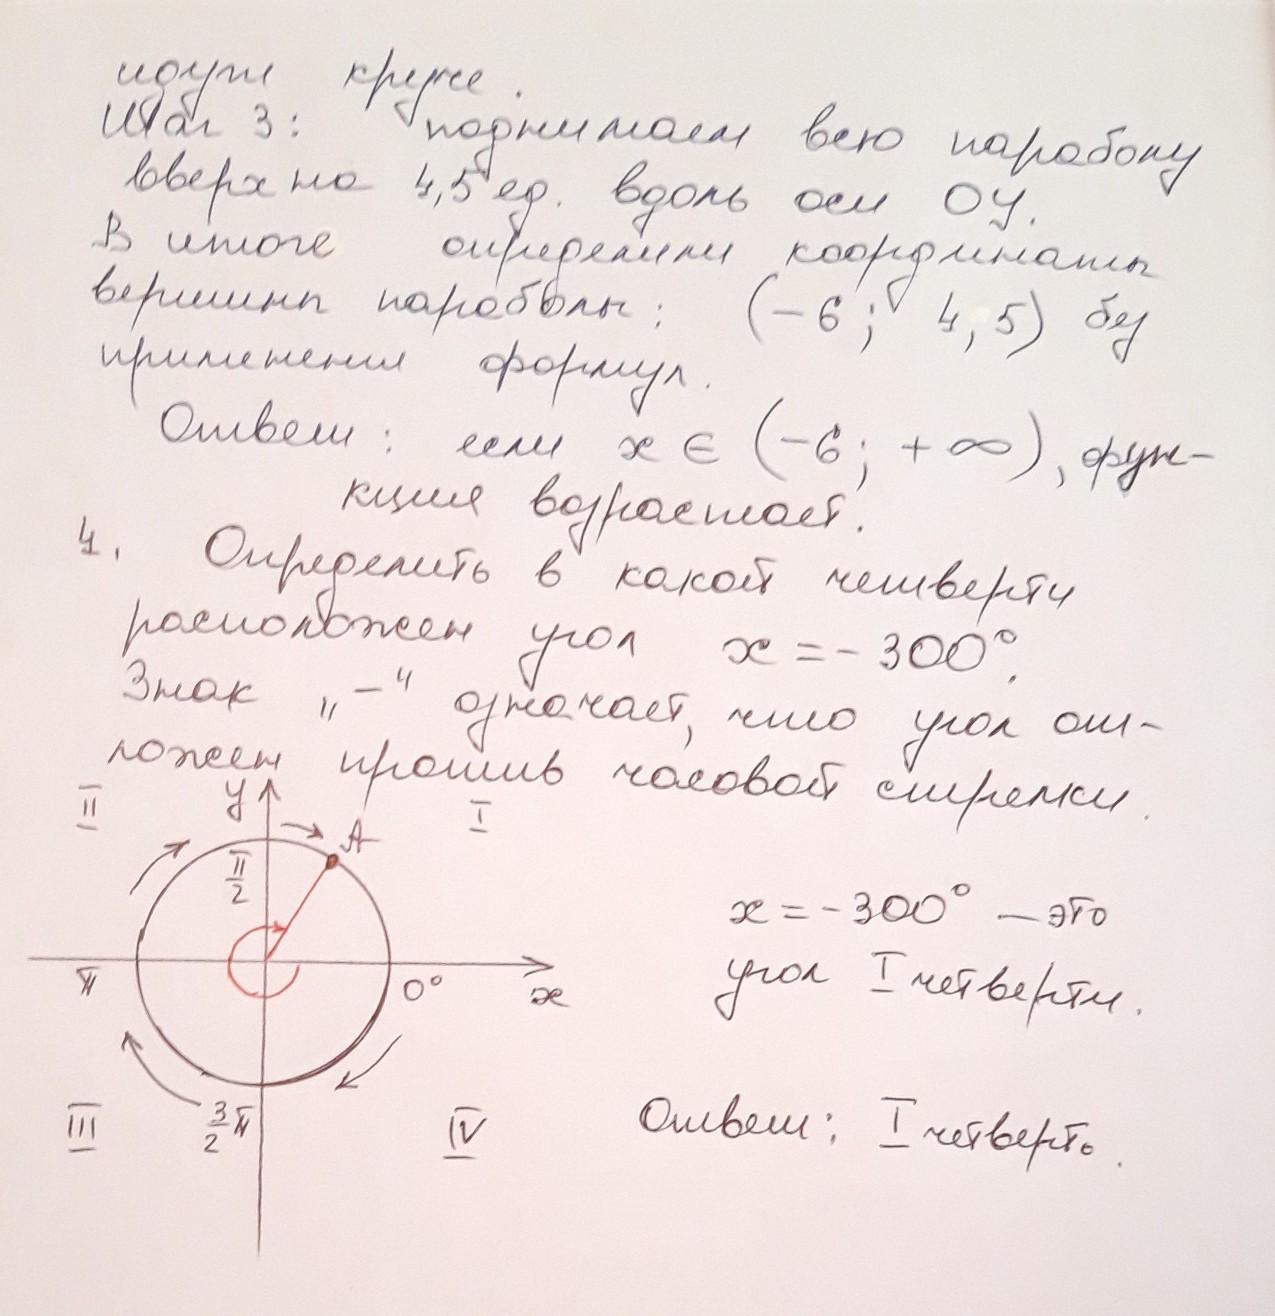 идут круче.
Шаг 3: поднимаем всю параболу
вверх на 4,5 ед. вдоль оси OY.
В итоге определили координаты
вершины параболы: (-6; 4,5) без
применения формул.
Ответ: если x ∈ (-6; +∞), фун-
кция возрастает.
4. Определить в какой четверти
расположен угол x = -300°.
Знак „-“ означает, что угол от-
ложен против часовой стрелки.
II y I
A
π/2
x = -300° — это
π 0° x
угол I четверти.
III 3/2 π IV
Ответ: I четверть.